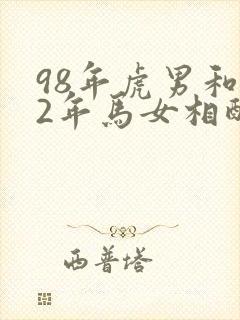 98年虎男和
2年馬女相
西普塔